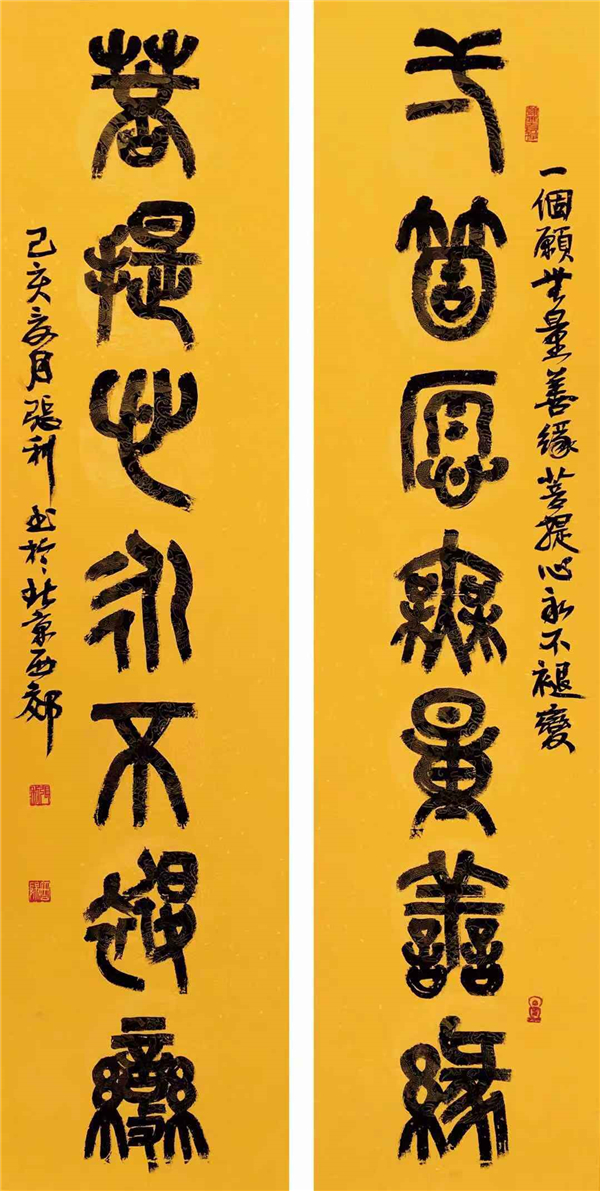 一個願無量善緣菩提心永不褪變
弌箇愿無量善緣
菩提心永不褪變
己亥夏月張利書於北京西郊